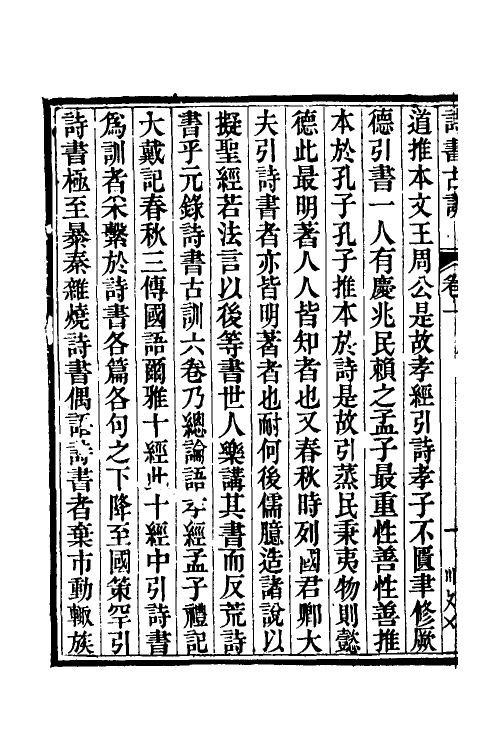 詩書古訓
卷一
一
道推本文王周公是故孝經引詩孝子不匱聿修厥
德引書一人有慶兆民賴之孟子最重性善性善推
本於孔子孔子推本於詩是故引蒸民秉夷物則懿
德此最明著人人皆知者也又春秋時列國君卿大
夫引詩書者亦皆明著者也耐何後儒臆造諸說以
擬聖經若法言以後等書世人樂講其書而反荒詩
書乎元錄詩書古訓六卷乃總論語孝經孟子禮記
大戴記春秋三傳國語爾雅十經此十經中引詩書
為訓者采繫於詩書各篇各句之下降至國策罕引
詩書極至暴秦雜燒詩書偶語詩書者棄市動輒族